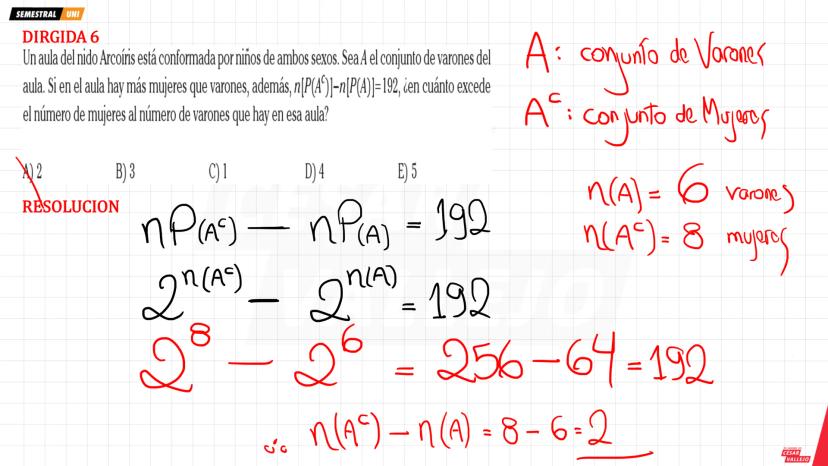 SEMESTRAL UNI
DIRGIDA 6
Un aula del nido Arcoíris está conformada por niños de ambos sexos. Sea A el conjunto de varones del
aula. Si en el aula hay más mujeres que varones, además, n[P(Aᶜ)]–n[P(A)]=192, ¿en cuánto excede
el número de mujeres al número de varones que hay en esa aula?
A) 2 B) 3 C) 1 D) 4 E) 5
RESOLUCION
A: conjunto de Varones
Aᶜ: conjunto de Mujeres
n(A) = 6 varones
n(Aᶜ) = 8 mujeres
nP(Aᶜ) — nP(A) = 192
2ⁿ⁽ᴬᶜ⁾ — 2ⁿ⁽ᴬ⁾ = 192
2⁸ — 2⁶ = 256 – 64 = 192
∴ n(Aᶜ) – n(A) = 8 – 6 = 2
CÉSAR
VALLEJO